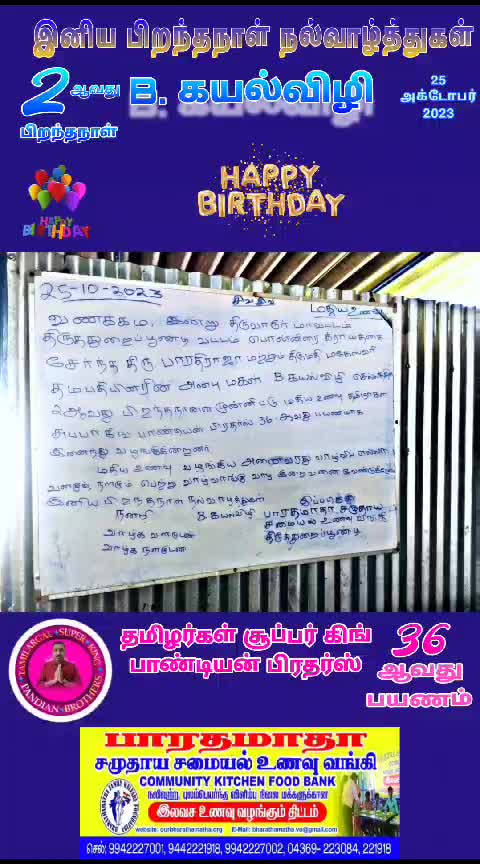 இனிய பிறந்தநாள் நல்வாழ்த்துகள்
2 ஆவது
பிறந்தநாள்
B. கயல்விழி
25
அக்டோபர்
2023
HAPPY
BIRTHDAY
HAPPY
BIRTHDAY
25-10-2023 சிவசிவ மதியஉணவு
வணக்கம், இன்று திருவாரூர் மாவட்டம்
திருத்துறைப்பூண்டி வட்டம் கிராமத்தை
சேர்ந்த திரு பாரதிராஜா மற்றும் திருமதி மகேஸ்வரி
தம்பதியினரின் அன்பு மகள் B.கயல்விழி
2ஆவது பிறந்தநாளை முன்னிட்டு மதிய உணவு தமிழர்கள்
சூப்பர் கிங் பாண்டியன் பிரதர்ஸ் 36-ஆவது பயணமாக
இணைந்து வழங்குகின்றனர்
மதிய உணவு வழங்கிய அனைவரது வாழ்வில் எல்லா
வளமும், நலமும் பெற்று வாழ்வாங்கு வாழ இறைவனை வேண்டுகிறோம்
இனிய பிறந்தநாள் நல்வாழ்த்துகள் இப்படிக்கு
நன்றி B.கயல்விழி பாரதமாதா சமுதாய
சமையல் உணவு வங்கி
வாழ்க வளமுடன் திருத்துறைப்பூண்டி
வாழ்க நலமுடன்
TAMILARGAL SUPER KING
PANDIAN BROTHERS
தமிழர்கள் சூப்பர் கிங்
பாண்டியன் பிரதர்ஸ்
36
ஆவது
பயணம்
பாரதமாதா
சமுதாய சமையல் உணவு வங்கி
COMMUNITY KITCHEN FOOD BANK
நலிவுற்ற, புலம்பெயர்ந்த விளிம்பு நிலை மக்களுக்கான
இலவச உணவு வழங்கும் திட்டம்
website: ourbharathamatha.org E-Mail: bharathamatha vo@gmail.com
செல்: 9942227001, 9442221918, 9942227002, 04369- 223084, 221918